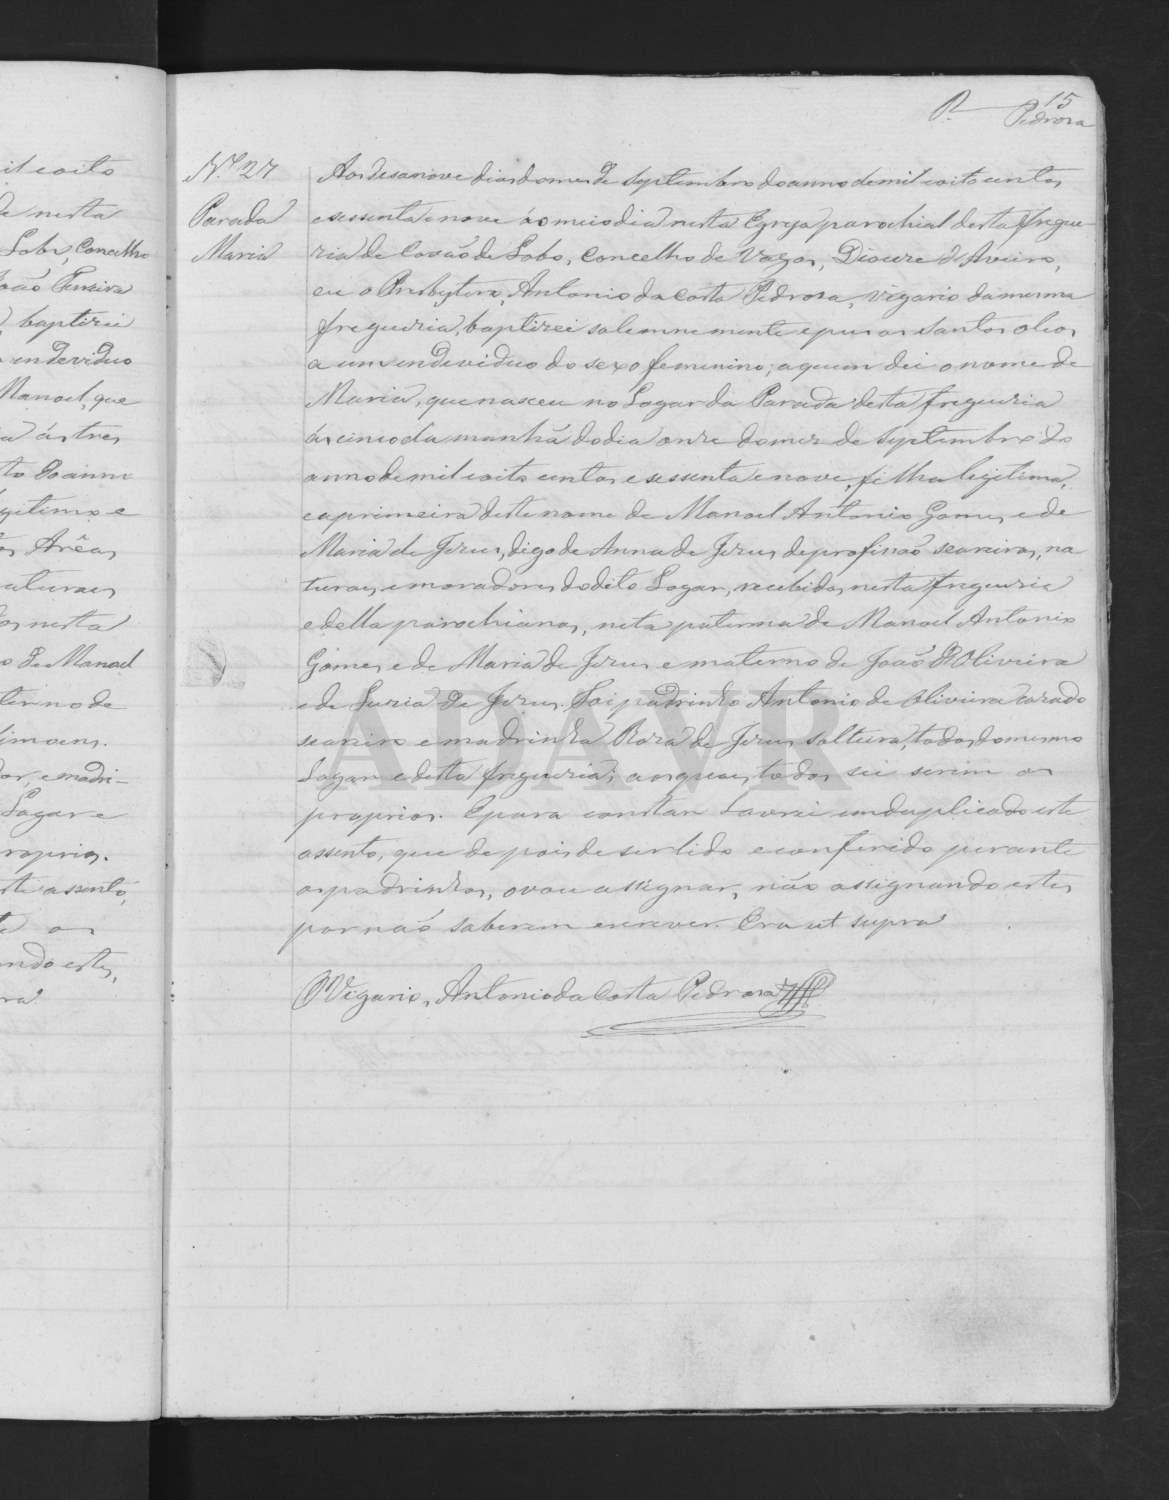 15
P. Pedrosa
N.º 27
Parada
Maria
Aos desanove dias do mes de Septembro do anno de mil e oito centos
e sessenta e nove ás meio dia nesta Egreja parochial desta fregue-
ria de Covão de Lobo, Concelho de Vagos, Diocese d'Aveiro,
eu o Presbytero, Antonio da Costa Pedrosa, vigario da mesma
freguesia, baptizei solemnemente e pus os Santos oleos
a um endeviduo do sexo femenino; a quem dei o nome de
Maria, que nasceu no Logar da Parada desta freguesia
ás cinco da manhã do dia onze do mez de Septembro do
anno de mil e oito centos e sessenta e nove, filha legitima,
e a primeira deste nome de Manoel Antonio Gomes e de
Maria de Jesus, digo de Anna de Jesus, de profissão seareiros, na
turaes, e moradores do dito Logar, recebidos nesta freguesia
e della parochianos, neta paterna de Manoel Antonio
Gomes e de Maria de Jesus e materno de João d'Oliveira
e de Luzia de Jesus. Foi padrinho Antonio de Oliveira casado
seareiro e madrinha Roza de Jesus solteira, todos do mesmo
Logar e desta freguesia; aos quaes todos sei serem os
proprios. E para constar lavrei em duplicado este
assento, que depois de ser lido e conferido perante
os padrinhos, o vou assignar, não assignando estes
por não saberem escrever. Era ut supra
O Vigario, Antonio da Costa Pedrosa
ADAVR
Lobo, Concelho
João Ferreira
baptizei
endeviduo
Manoel, que
ás tres
Arêas
nesta
de Manoel
terno de
e madri-
Logar e
assento,
ando estes,